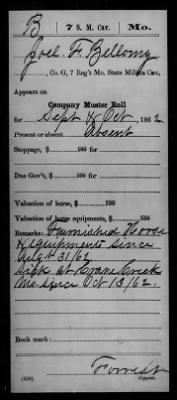 B 7 S. M. Cav. Mo.
Joel F. Bellomy
, Co. G, 7 Reg't Mo. State Militia Cav,
Appears on
Company Muster Roll
for Sept & Oct, 1862
Present or absent, Absent
Stoppage, $ 100 for
Due Gov't, $ 100 for
Valuation of horse, $ 100
Valuation of horse equipments, $ 100
Remarks: Furnished Horse
& equipments since
Augt 31/62
Sick at Crane Creek
Mo. since Oct 13/62.
Book mark:
Forrest
(858) Copyist.